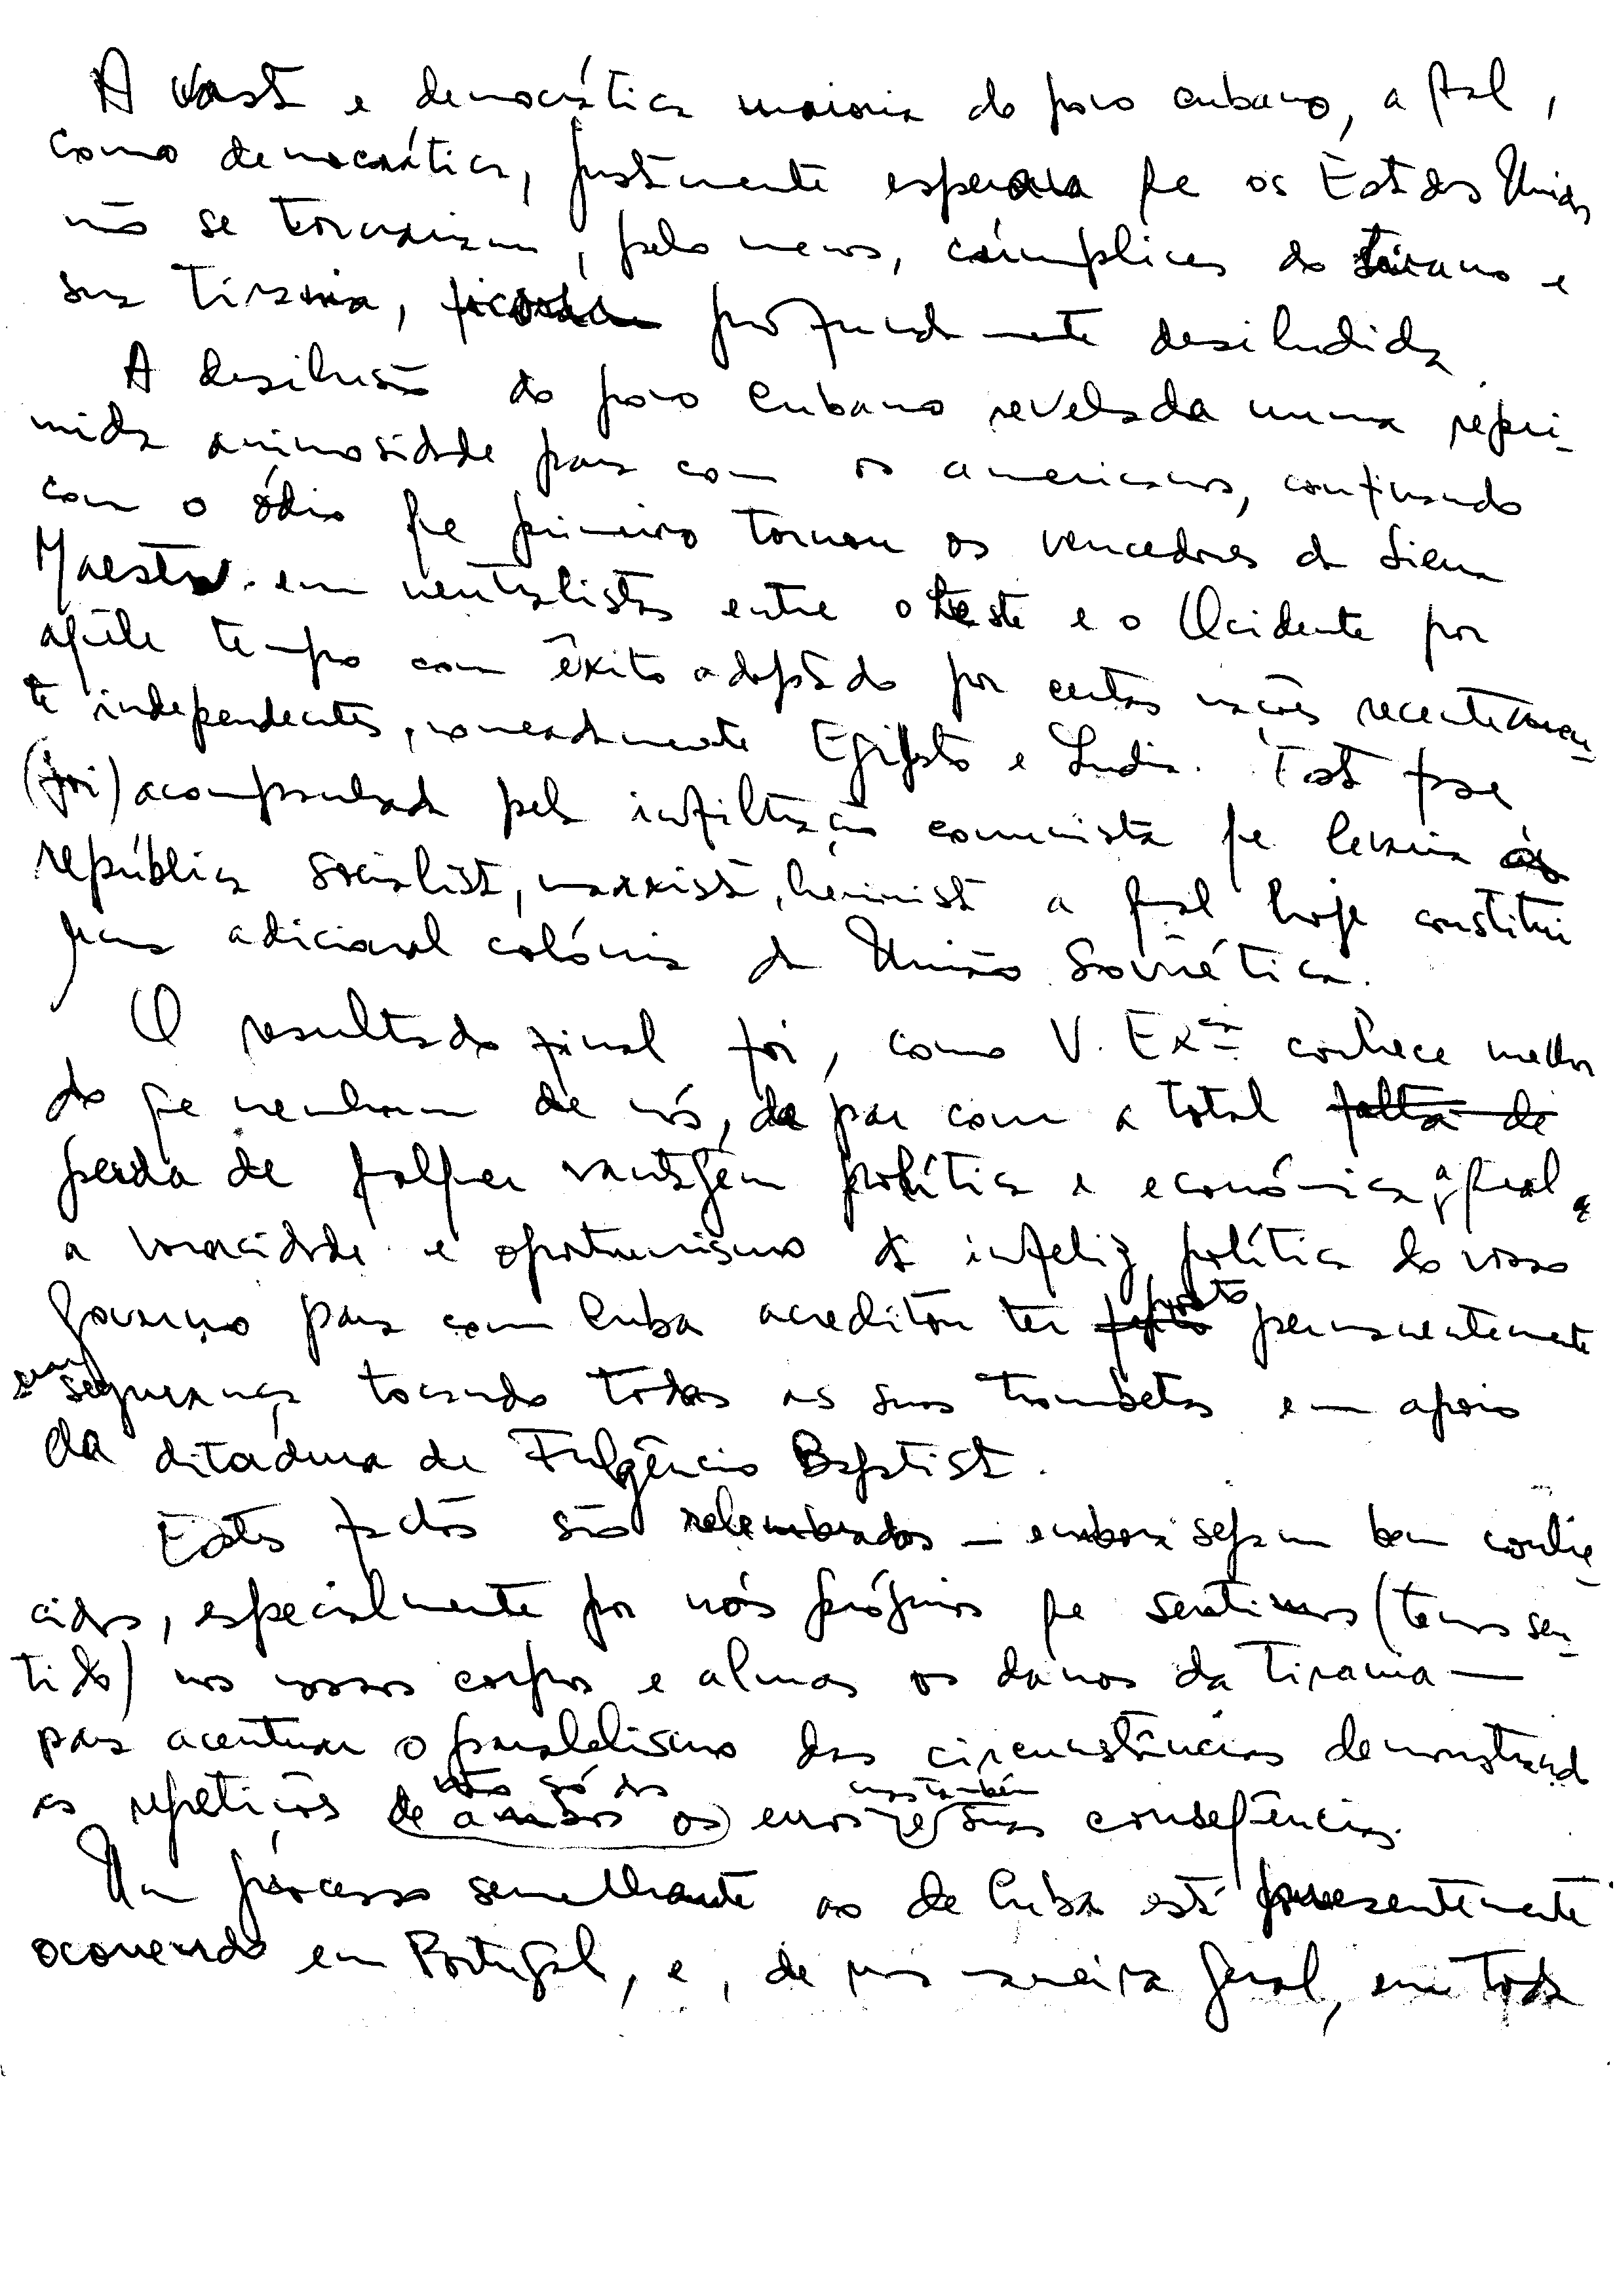 A vasta e democrática maioria do povo cubano, a qual,
como democrática, justamente esperava que os Estados Unidos
não se tornariam, pelo menos, cúmplices do tirano e
sua tirania, profundamente desiludida.
A desilusão do povo cubano revelada numa repri-
mida animosidade para com os americanos, continuando
com o ódio que primeiro tornou os vencedores da Sierra
Maestra em neutralistas entre o Leste e o Ocidente por
aquêle tempo com êxito adoptado por certas nações recentemen-
te independentes, nomeadamente Egipto e India. Esta fase
(foi) acompanhada pela infiltração comunista que levaria às
república socialista, marxista, leninista a qual hoje constitui
uma adicional colónia da União Soviética.
O resultado final foi, como V. Excia conhece melhor
do que nenhum de nós, de par com a total falta de
perda de qualquer vantagem política e económica, a qual
a voracidade e oportunismo da infeliz política do vosso
governo para com Cuba acreditou ter posto permanentemente
em segurança tocando todas as suas trombetas em apoio
da ditadura de Fulgêncio Baptista.
Estes factos são relembrados — embora sejam bem conhe-
cidos, especialmente por nós próprios que sentimos (temos sen-
tido) nos nossos corpos e almas os danos da tirania —
para acentuar o paralelismo das circunstâncias demonstrando
não só dos mas também
as repetições de ambos os erros e suas consequências.
Um processo semelhante ao de Cuba está presentemente
ocorrendo em Portugal, e, de uma maneira geral, em toda